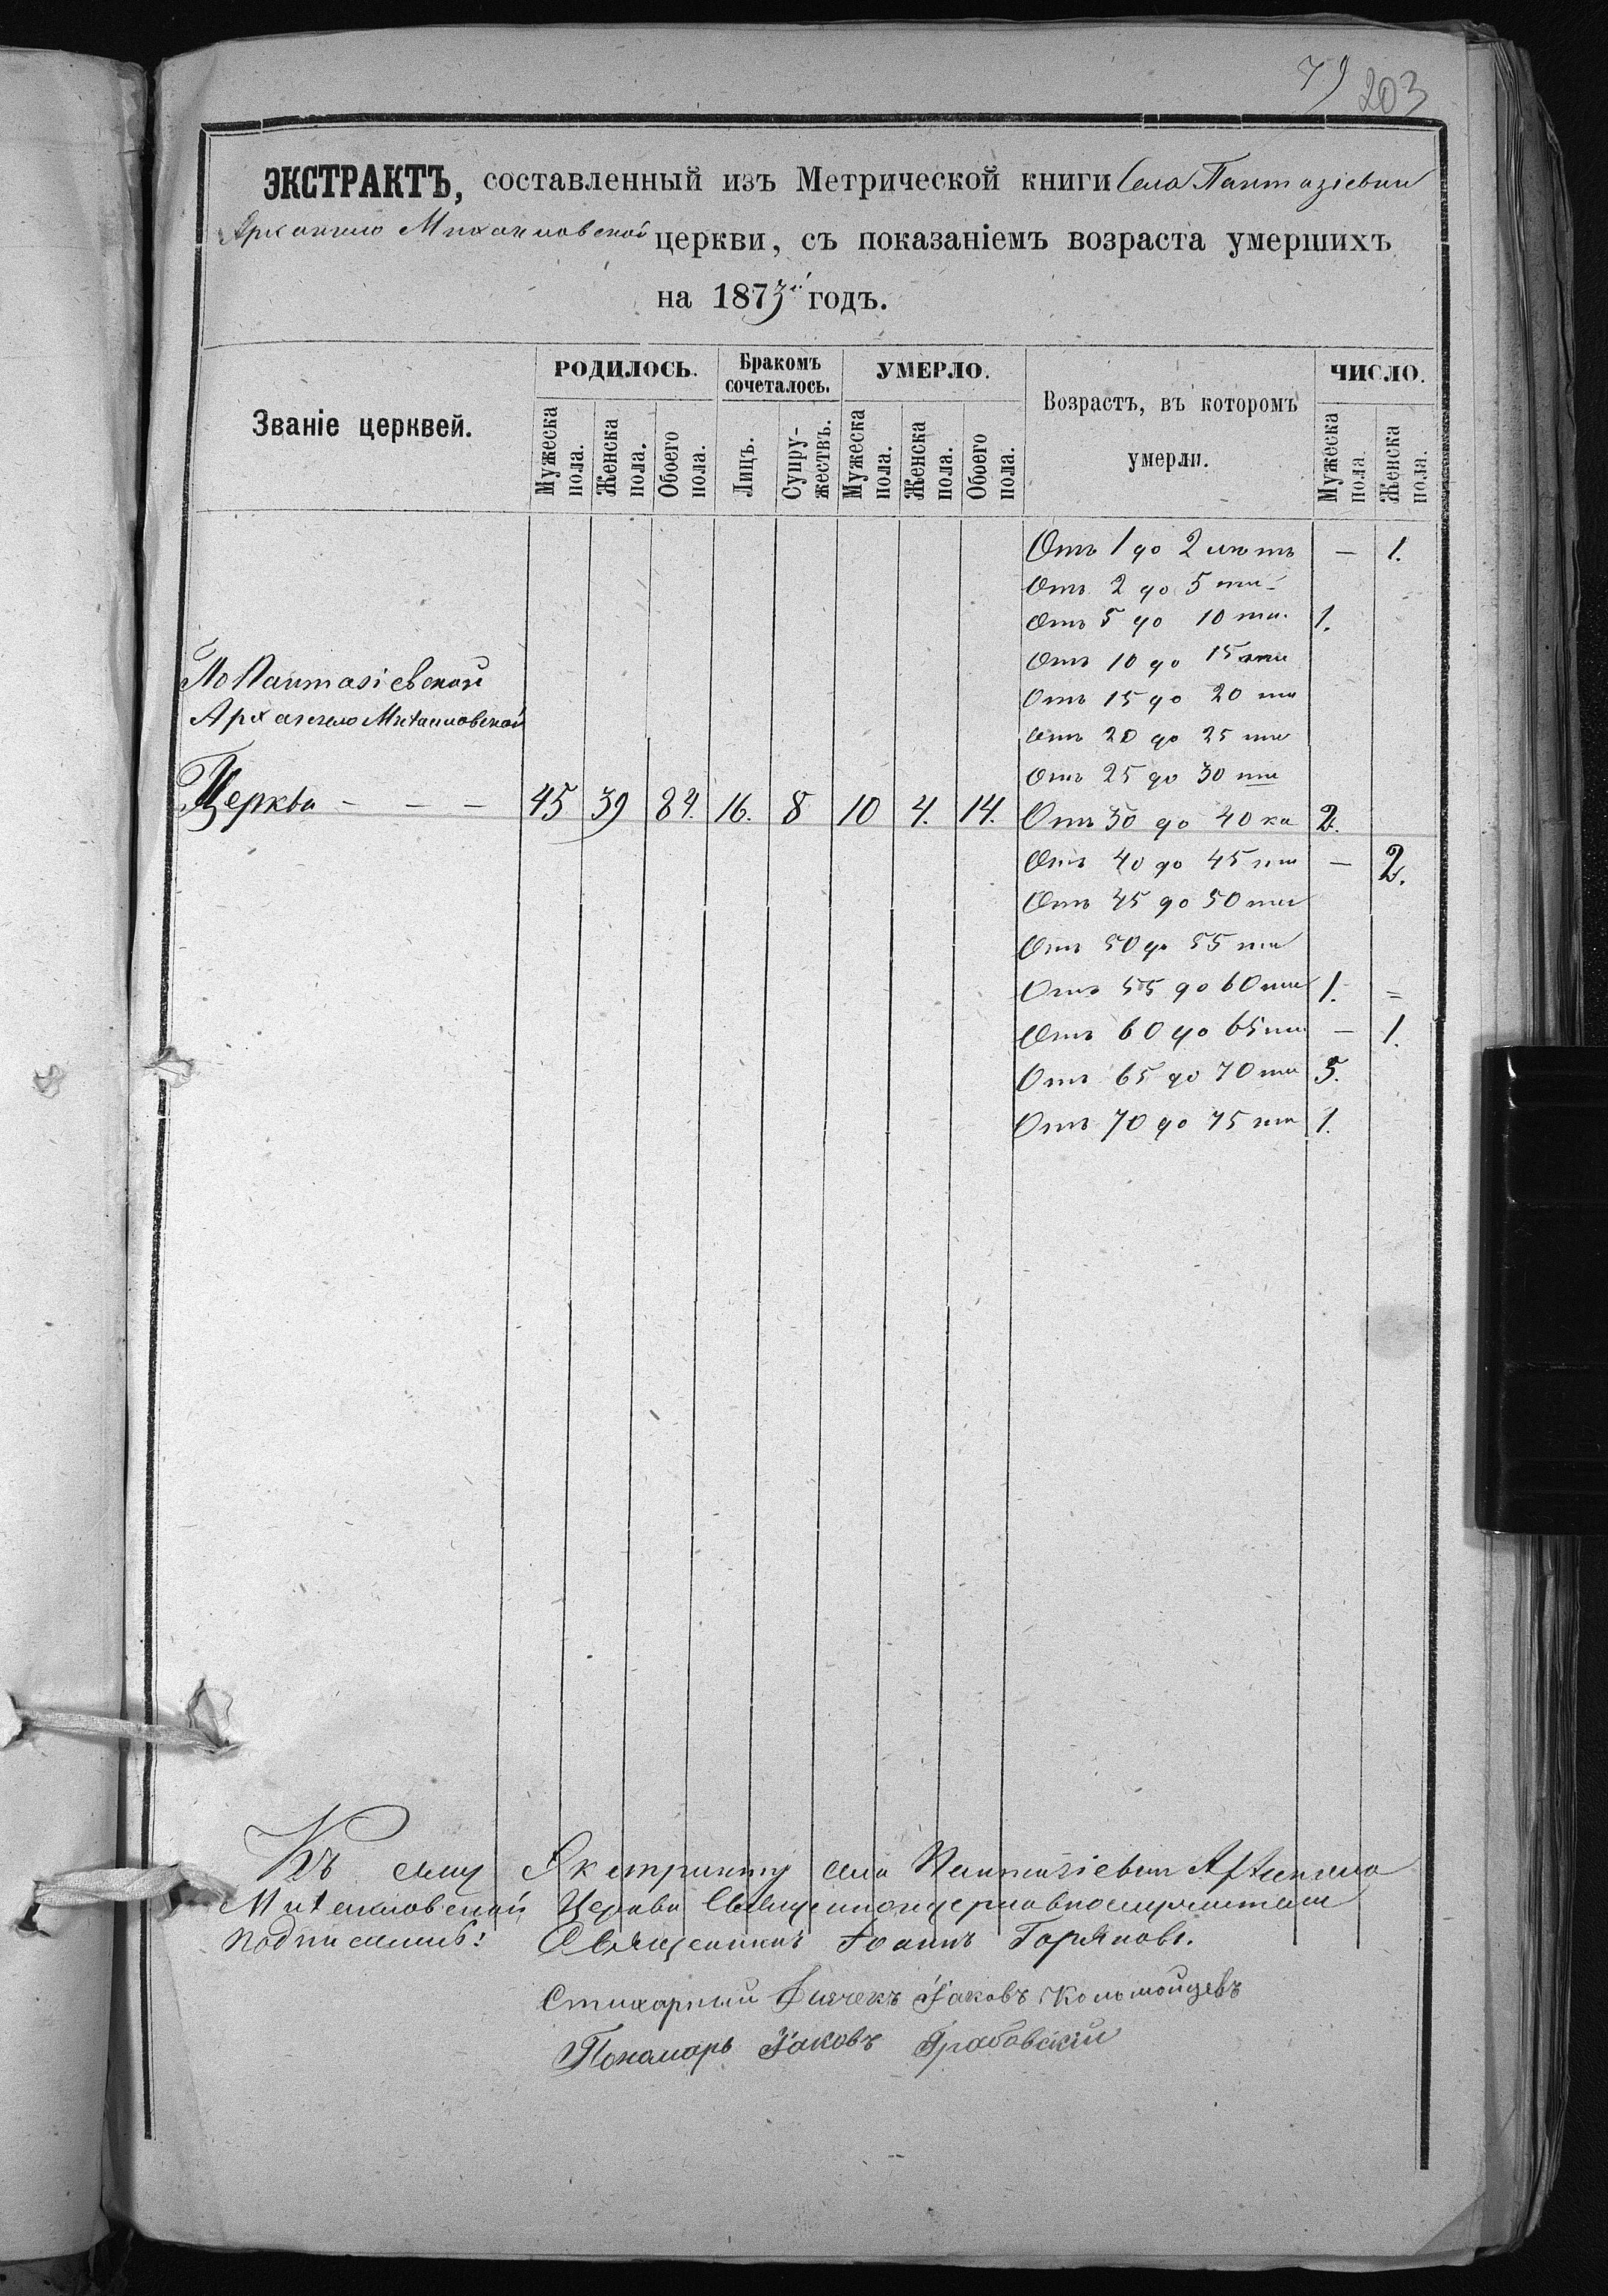 79 203
ЭКСТРАКТЪ, составленный изъ Метрической книги Села Пантазіевки
Архангело Михайловской церкви, съ показаніемъ возраста умершихъ
на 1873й годъ.
Званіе церквей.
РОДИЛОСЬ.
Бракомъ сочеталось.
УМЕРЛО.
Возрастъ, въ которомъ умерли.
ЧИСЛО.
Мужеска пола.
Женска пола.
Обоего пола.
Лицъ.
Супружествъ.
Мужеска пола.
Женска пола.
Обоего пола.
Мужеска пола.
Женска пола.
Отъ 1 до 2 лѣтъ — 1.
Отъ 2 до 5 ти
Отъ 5 до 10 ти. 1.
Отъ 10 до 15 ти
Отъ 15 до 20 ти
Отъ 20 до 25 ти
Отъ 25 до 30 ти
По Пантазіевской
Архангело Михаиловской
Церкви - - - 45 39 84. 16. 8 10 4. 14. Отъ 30 до 40 ка 2.
Отъ 40 до 45 ти — 2.
Отъ 45 до 50 ти
Отъ 50 до 55 ти
Отъ 55 до 60 ти 1. =
Отъ 60 до 65 ти — 1.
Отъ 65 до 70 ти 5.
Отъ 70 до 75 ти 1.
Къ сему Экстракту села Пантазіевки Архангело
Михайловской Церкви Священноцерковнослужители
подписались: Священникъ Іоаннъ Горяновъ.
Стихарный Дьячекъ Іаковъ Коломойцевъ
Пономарь Іаковъ Грабовскій